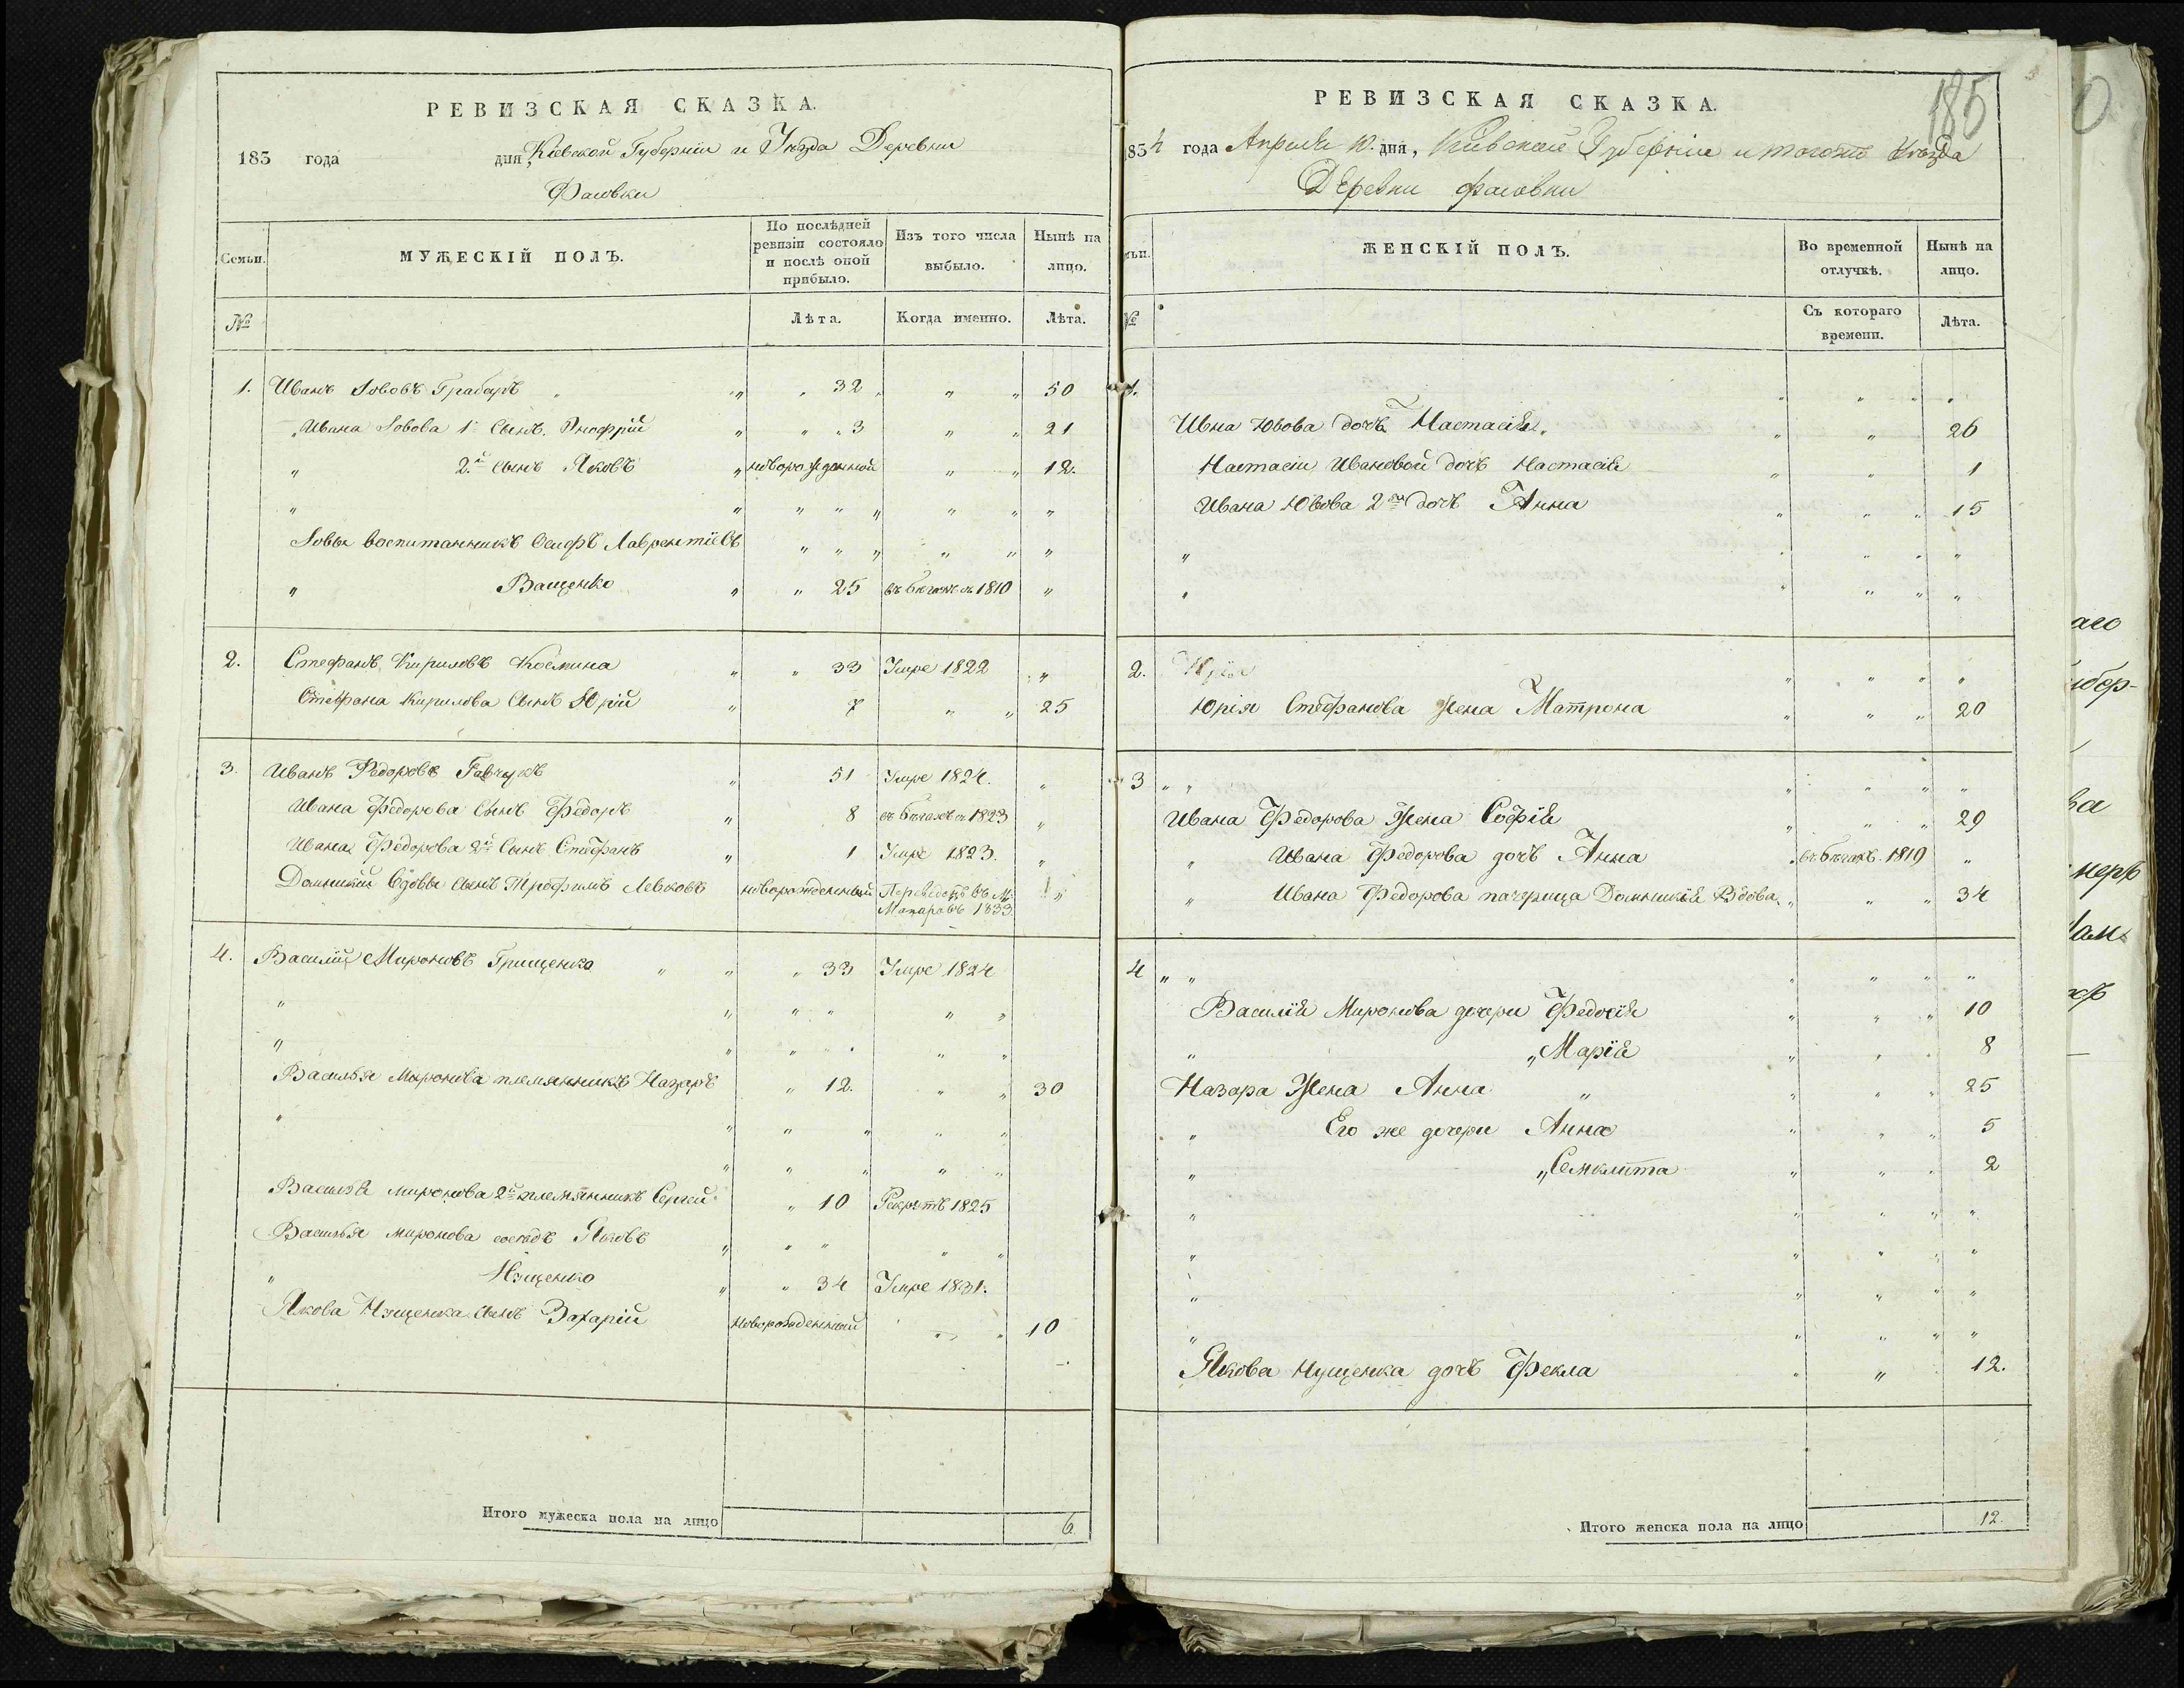 РЕВИЗСКАЯ СКАЗКА.
183 года дня, Кіевской Губерніи и Уезда Деревни
Фасовки
Семьи. МУЖЕСКІЙ ПОЛЪ. По послѣдней ревизіи состояло и послѣ оной прибыло. Изъ того числа выбыло. Нынѣ на лицо.
№ Лѣта. Когда именно. Лѣта.
1. Иванъ Іововъ Грабаръ " " 32 " " 50
Ивана Іовова 1 Сынъ Онофрій " " 3 " " 21
" 2й Сынъ Яковъ " новорожденной " " 12.
" " " " " " " "
Іовы воспитанникъ Осифъ Лаврентіевъ " " " " " "
" Ващенко " " 25 въ бегахъ съ 1810 "
2. Стефанъ Кириловъ Космина " " 33 Умре 1822 "
Стефана Кирилова Сынъ Юрій " 7 " " 25
3. Иванъ Федоровъ Гавчукъ " 51 Умре 1824. "
Ивана Федорова Сынъ Федоръ " 8 въ бегахъ съ 1823 "
Ивана Федорова 2й Сынъ Стефанъ " 1 Умре 1823. "
Домникіи Вдовы Сынъ Трофимъ Левковъ новорожденный Переведенъ въ М:
Макаровъ 1833. "
4. Василій Мироновъ Грищенко " " " 33 Умре 1824
" " " " " "
" " " " " "
Василья Миронова племянникъ Назаръ " 12. " " 30
" " " " " "
" " " " "
Василія миронова 2й племянникъ Сергей " 10 Рекрутъ 1825
Василья миронова соседъ Яковъ " " " " "
" Нущенко " " 34 Умре 1831.
Якова Нущенка Сынъ Захарій новорожденный " " 10
Итого мужеска пола на лицо 6.
185
РЕВИЗСКАЯ СКАЗКА.
1834 года Апреля 10. дня, Кіевской Губерніи и тогожъ Уезда
Деревни Фасовки
Семьи. ЖЕНСКІЙ ПОЛЪ. Во временной отлучкѣ. Нынѣ на лицо.
№ Съ котораго времени. Лѣта.
1. " " " "
Ивна Ювова дочь Настасія " " " 26
Настасіи Ивановой дочь Настасія " " 1
Ивана Ювова 2я дочь Анна " " " 15
" " " " "
" " " " "
2. " " " "
Юрія Стефанова Жена Матрона " " " 20
3 " " " " " "
Ивана Федорова Жена Софія " " " 29
" Ивана Федорова дочь Анна " въ бегахъ 1819 "
" Ивана Федорова пачерица Домникія Вдова " " " 34
4 " " " " " "
Василія Миронова дочери Федосія " " " 10
" " Марія " " " 8
Назара Жена Анна " " " " 25
" Его же дочери Анна " " " 5
" " " " " 2
" " " " "
" " " " "
" " " " "
" " " " "
Якова Нущенка дочь Фекла " " 12.
Итого женска пола на лицо 12.